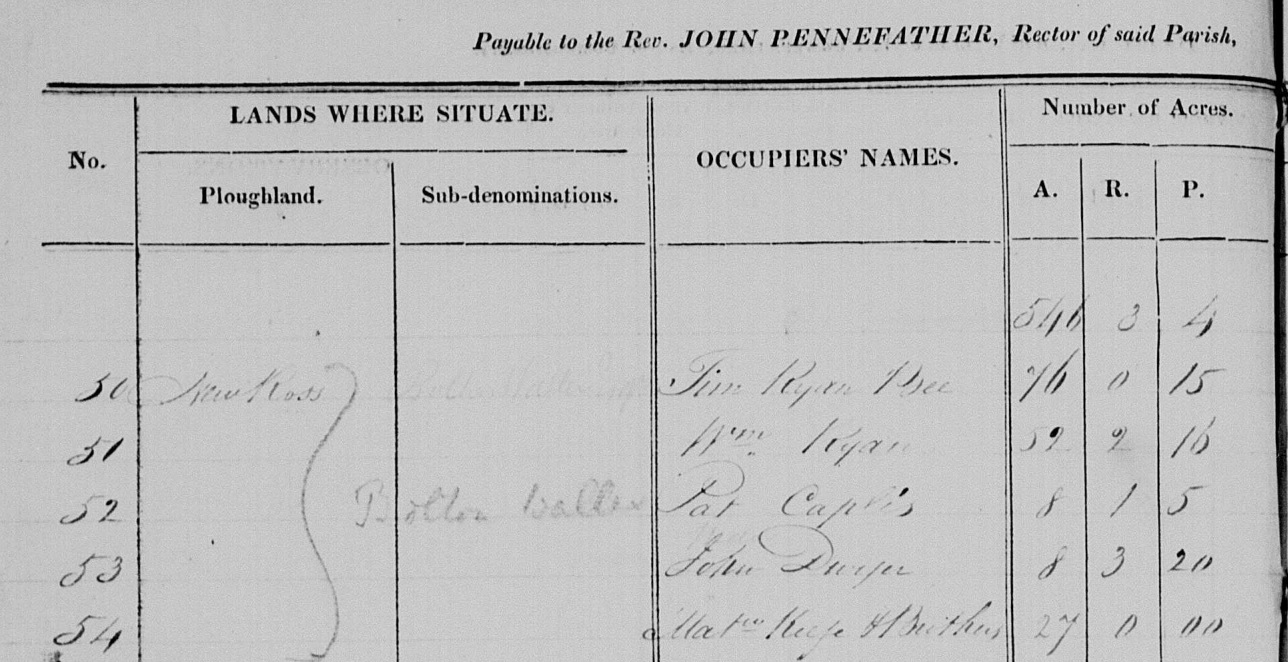 Payable to the Rev. JOHN PENNEFATHER, Rector of said Parish,
No. LANDS WHERE SITUATE. OCCUPIERS' NAMES. Number of Acres.
Ploughland. Sub-denominations. A. R. P.
546 3 4
50 New Ross Tim Ryan 76 0 15
51 Wm Ryan 52 2 16
52 Bolton Pat Caplis 8 1 5
53 John Dwyer 8 3 20
54 Keefe & Brothers 27 0 00